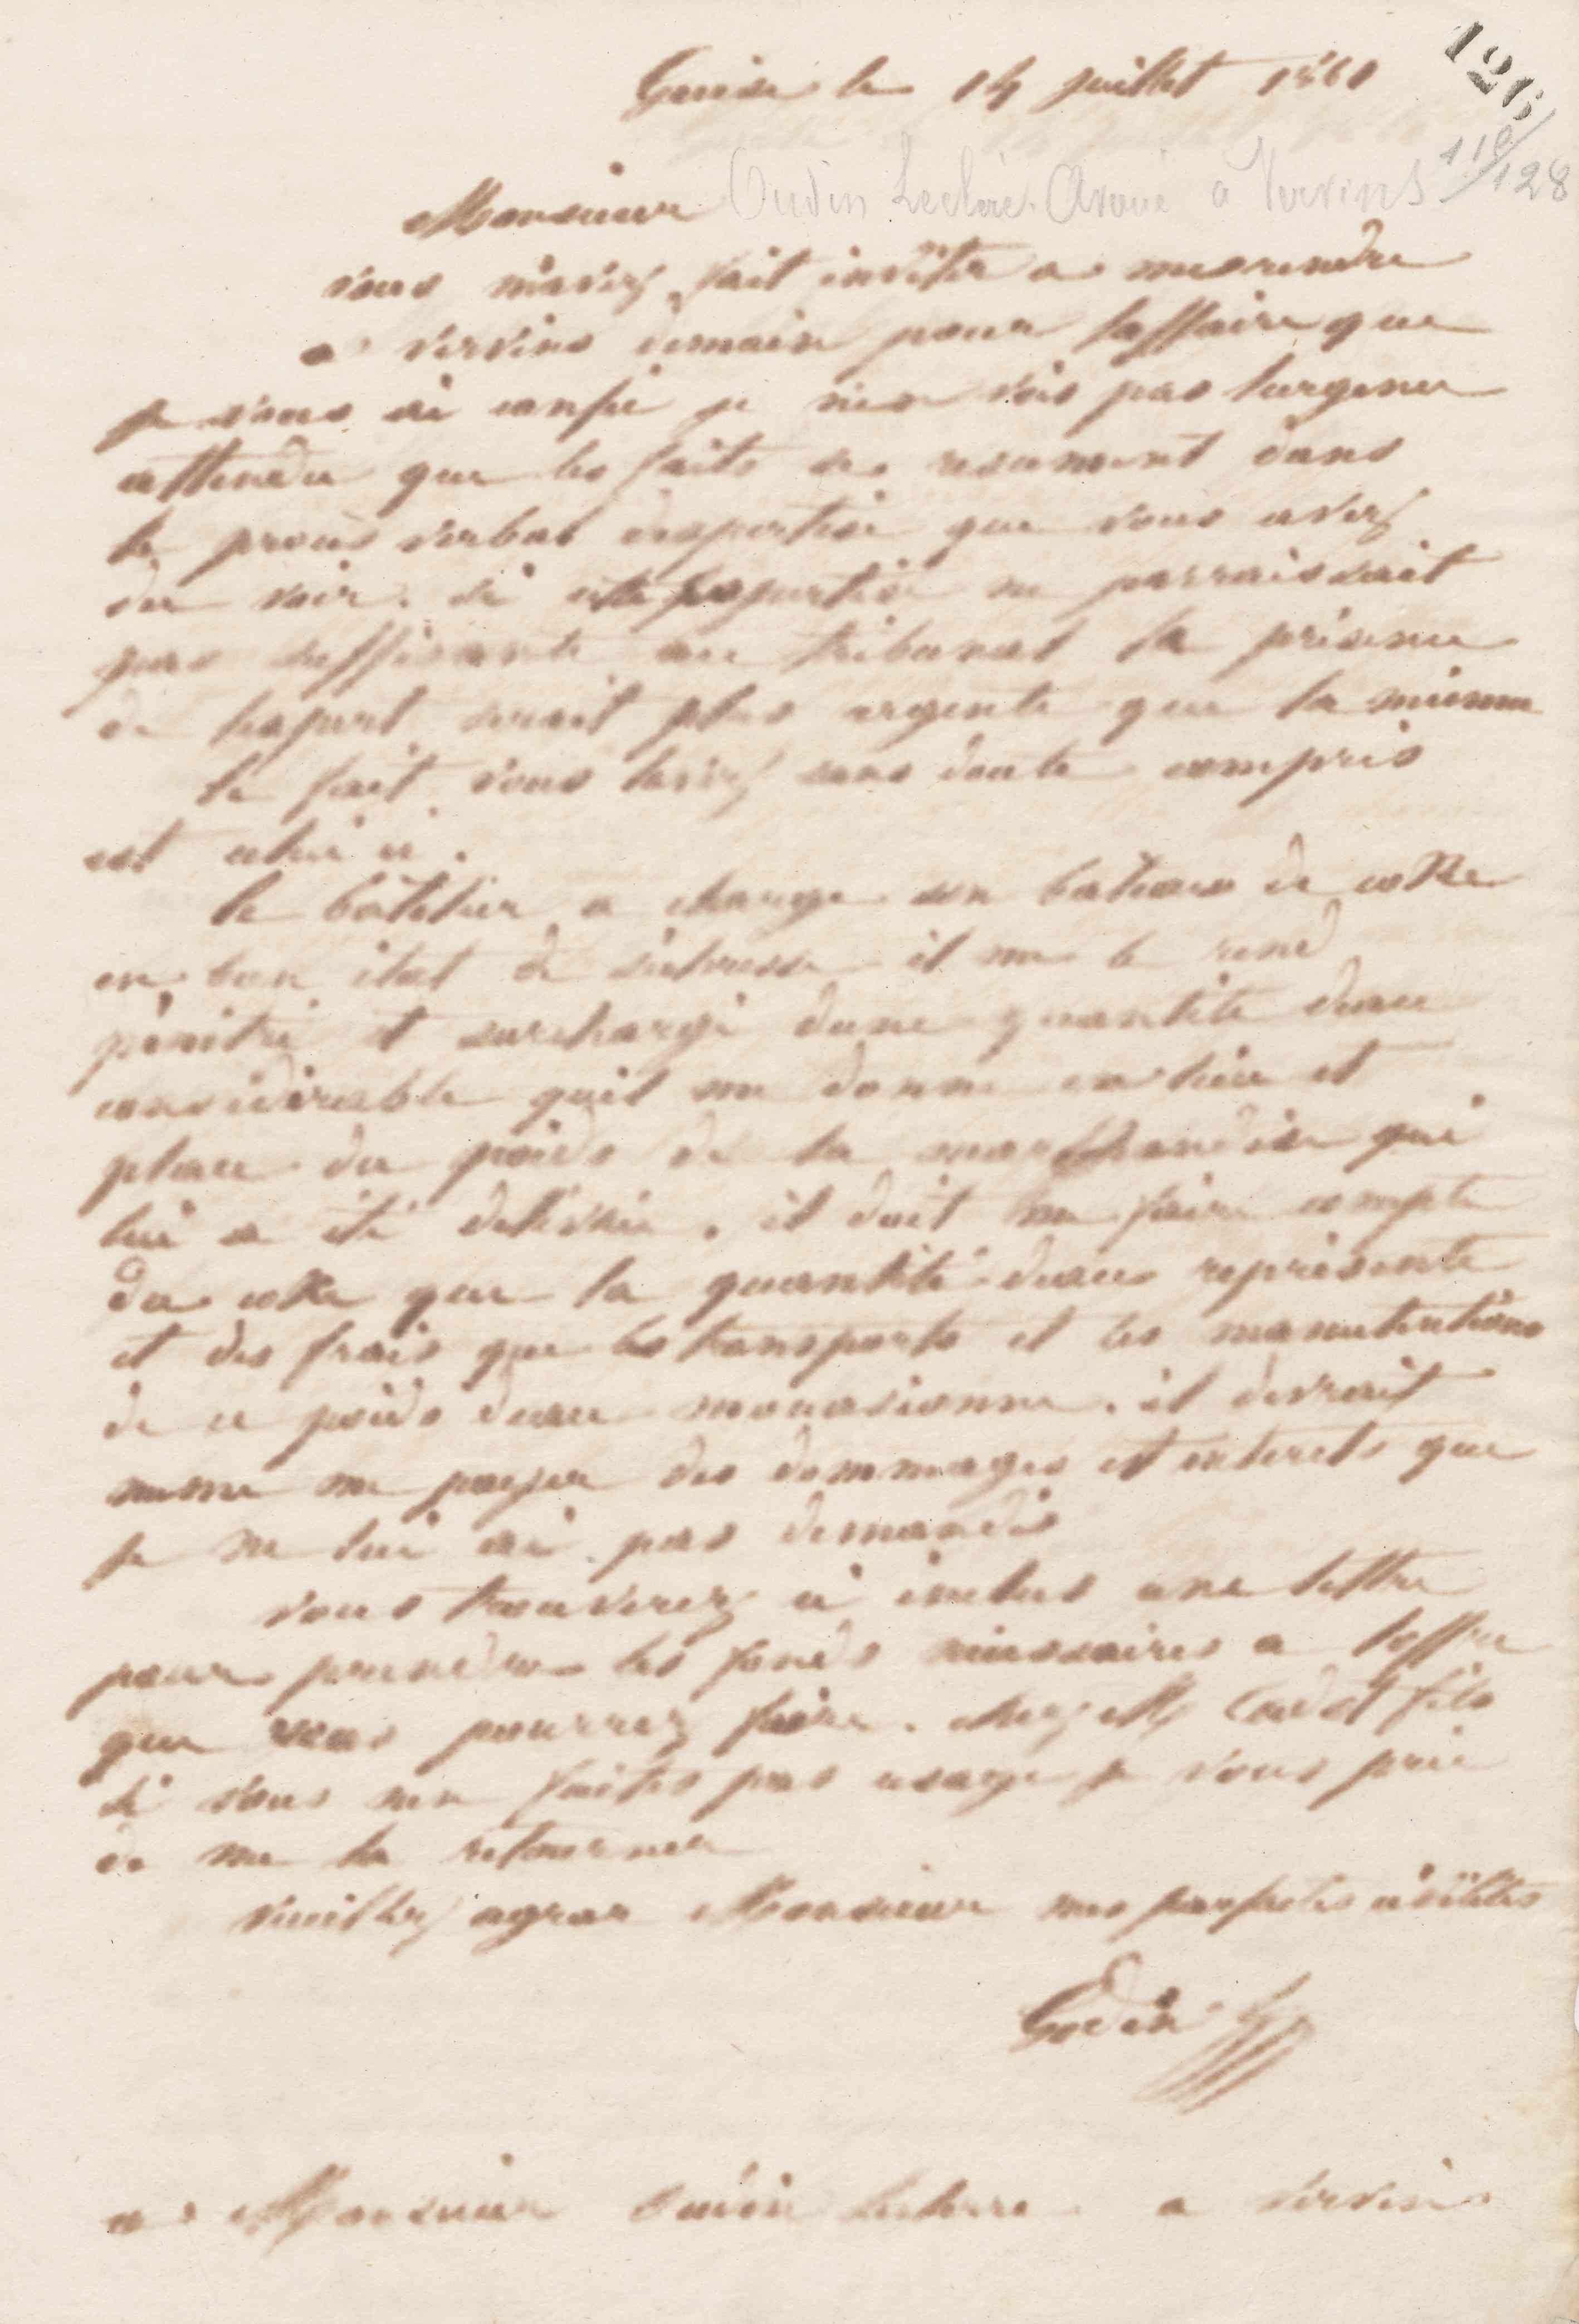 126
Guise le 14 juillet 1861
110/128
Monsieur Oudin Leclère Avoué a Vervins
vous m'avez fait inviter a me rendre
a Vervins demain pour laffaire que
je vous ai confié je n'en vois pas lurgence
attendu que les faits se resument dans
le procès verbal dexpertise que vous avez
du voir. si cette expertise ne parraissait
pas suffisante au tribunal la présence
de lexpert serait plus urgente que la mienne
le fait vous lavez sans doute compris
est celui ci.
le bâtelier a charge son bateau de coke
en bon état de sécheresse il me le rend
pénétré et surchargé dune quantité deau
considérable quil me donne en lieu et
place du poids de la marchandise qui
lui a été délivrée. il doit me faire compte
du coke que la quantité deau représente
et des frais que les transports et les manutentions
de ce poids deau moccasionne. il devrait
meme me payer des dommages et interets que
je ne lui ai pas demandés
vous trouverez ci inclus une lettre
pour prendre les fonds nécessaires a loffre
que vous pourrez faire. chez MM Cadet fils
si vous nen faites pas usage je vous prie
de me la retourner
veuillez agréer Monsieur mes parfaites civilités
Godin
a Monsieur Oudin Leclerc a Vervins